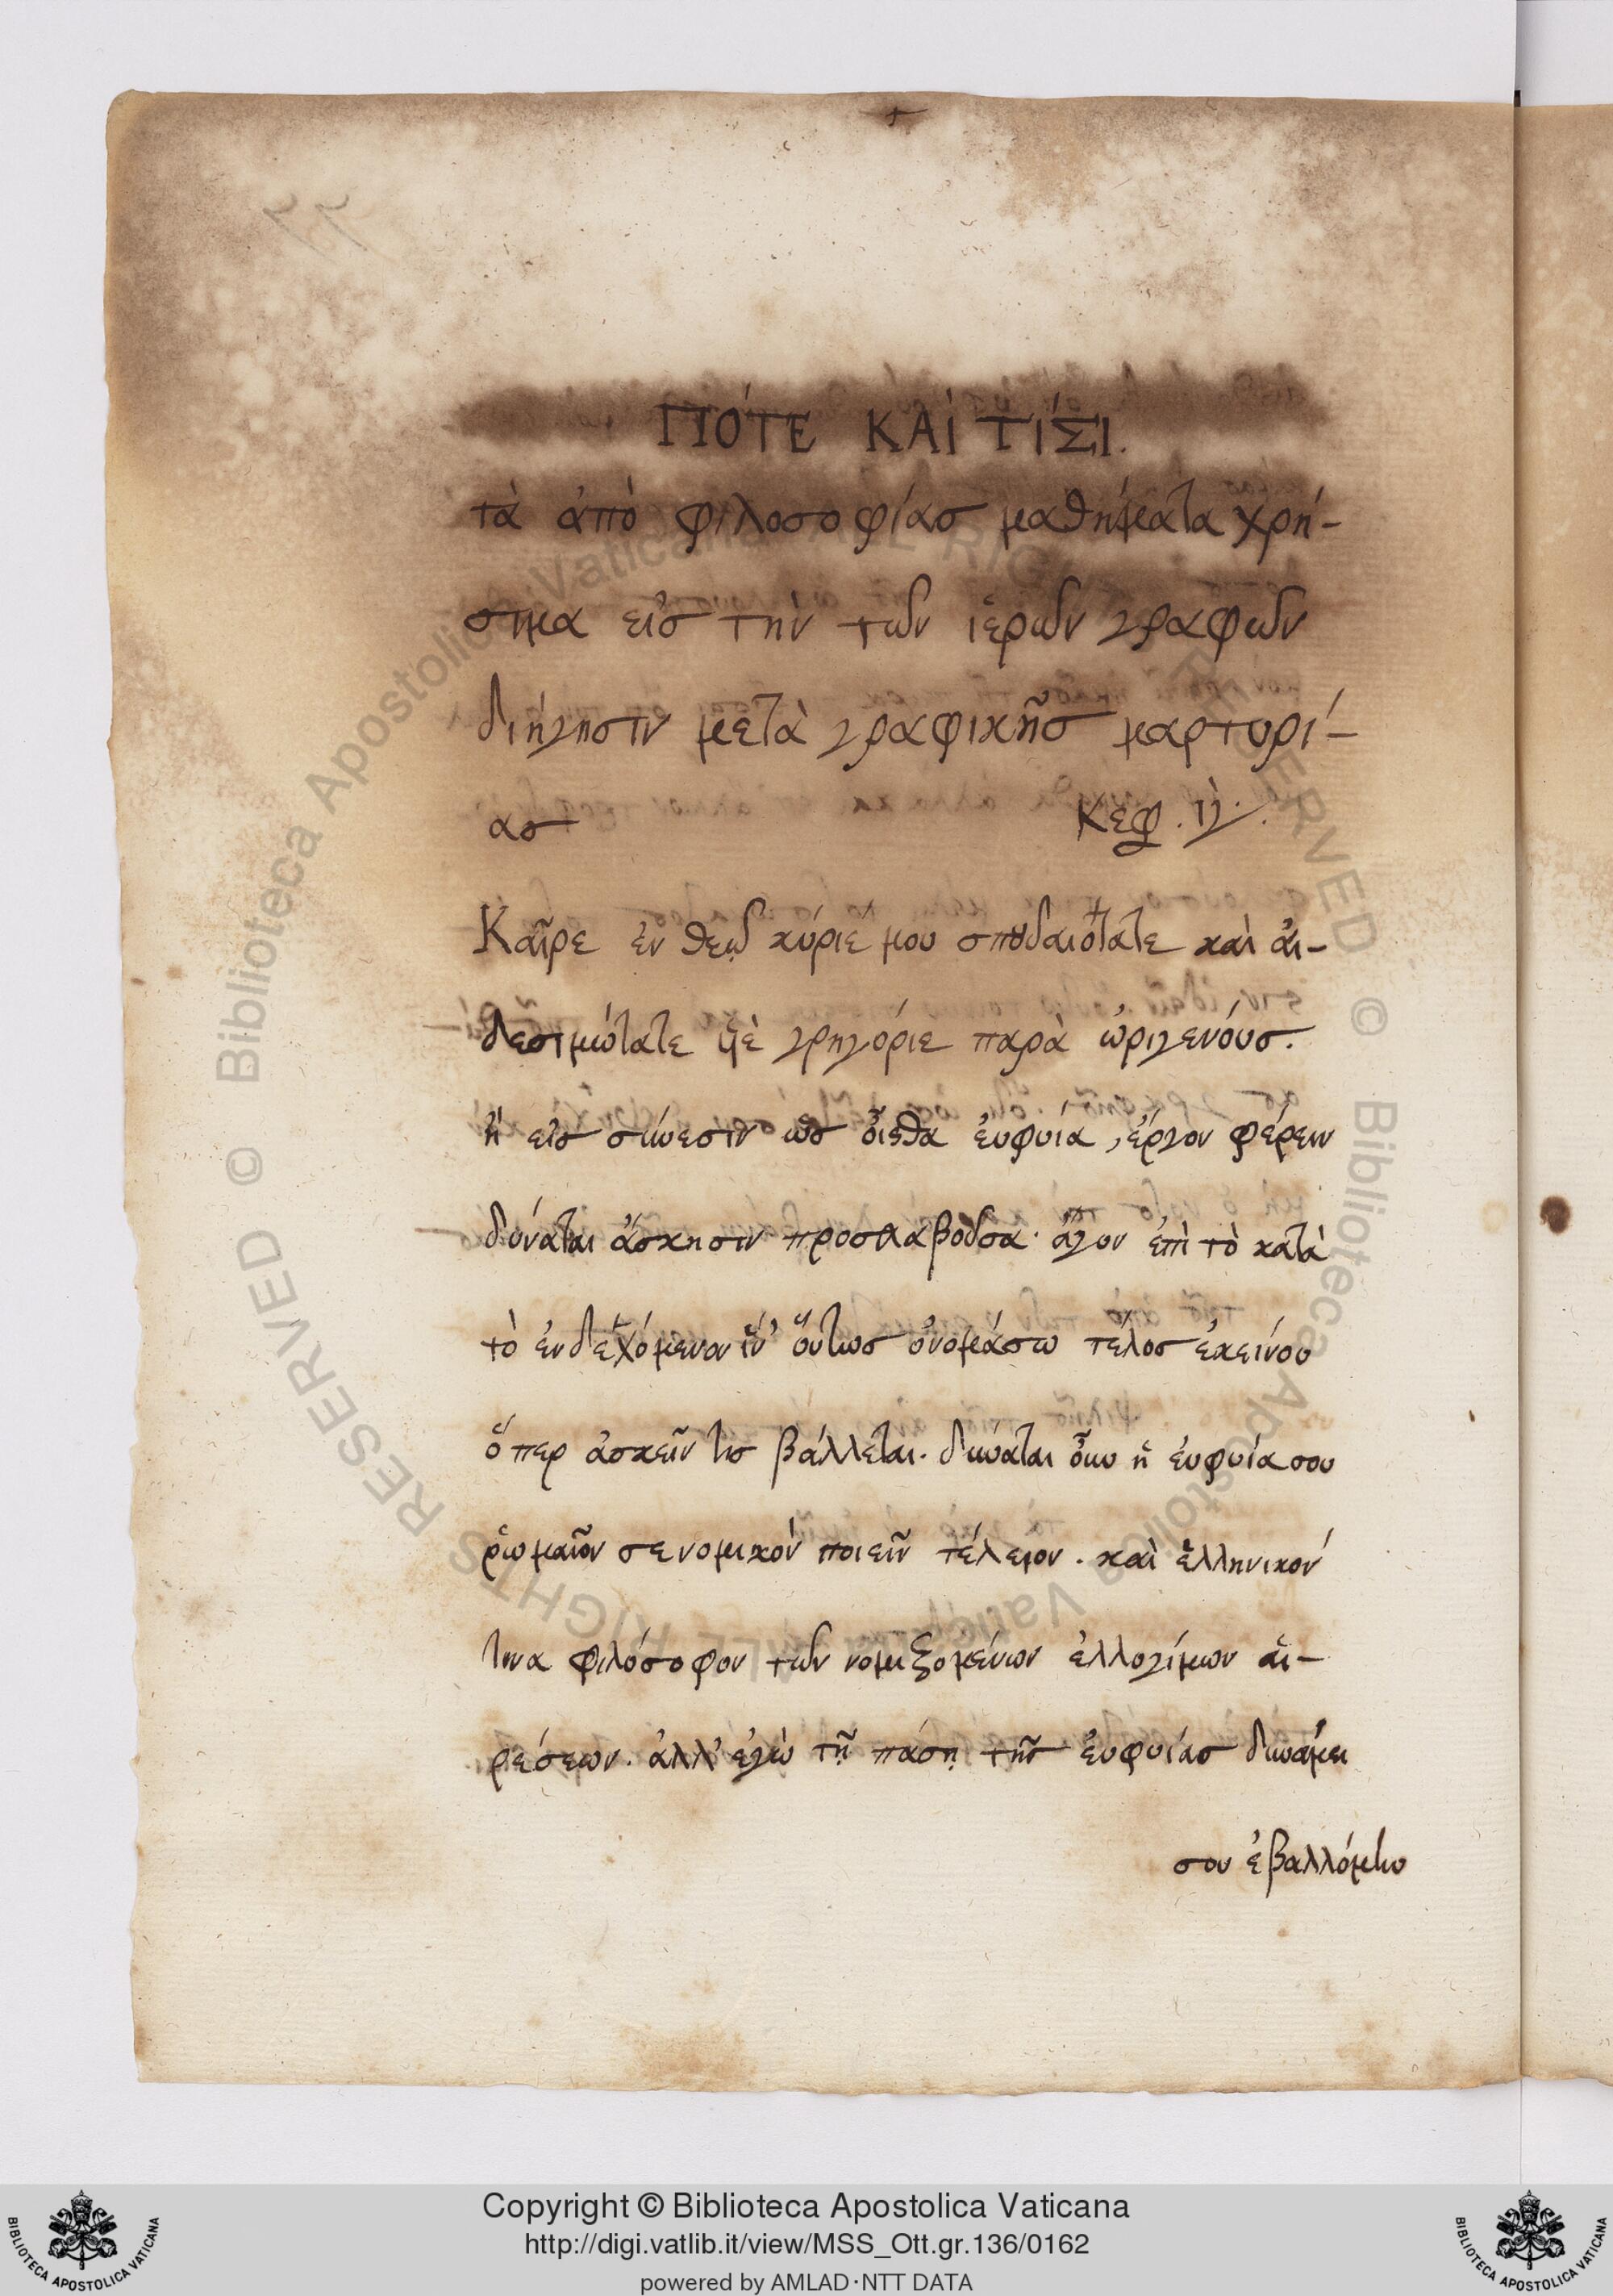 ΠΌΤΕ ΚΑῚ ΤΊΣΙ.
τὰ ἀπὸ φιλοσοφίασ μαθήματα χρή-
σημα εἰσ τὴν τῶν ἱερῶν γραφῶν
διήγησιν μετὰ γραφικῆσ μαρτυρί-
ασ Κεφ. ιγ.
Καῖρε ἐν θεῷ κύριέ μου σπουδαιότατε καὶ αἰ-
δεσιμώτατε γρηγόριε παρὰ ὠριγενόυσ.
ἡ εἰσ σύνεσιν ὡσ οἶσθα ἐυφυία, ἔργον φέρειν
δύναται ἄσκησιν προσλαβοῦσα· ἄγον ἐπὶ τὸ κατὰ
τὸ ἐνδεχόμενον ἵν' οὕτωσ ὀνομάσω τέλοσ ἐκείνου
ὅπερ ἀσκεῖν τισ βάλλεται. δύναται οὖν ἡ ἐυφυία σου
ῥωμαῖον σε νομικὸν ποιεῖν τέλειον. καὶ ἑλληνικόν
τινα φιλόσοφον τῶν νομιζομένων ἐλλογίμων αἱ-
ρέσεων. ἀλλ' ἐγὼ τῇ πάσῃ τῆσ ἐυφυίασ δυνάμει
σου ἐβαλλόμην
Copyright © Biblioteca Apostolica Vaticana
http://digi.vatlib.it/view/MSS_Ott.gr.136/0162
powered by AMLAD·NTT DATA
BIBLIOTECA APOSTOLICA VATICANA
BIBLIOTECA APOSTOLICA VATICANA
© Biblioteca Apostolica Vaticana ALL RIGHTS RESERVED © Biblioteca Apostolica Vaticana ALL RIGHTS RESERVED